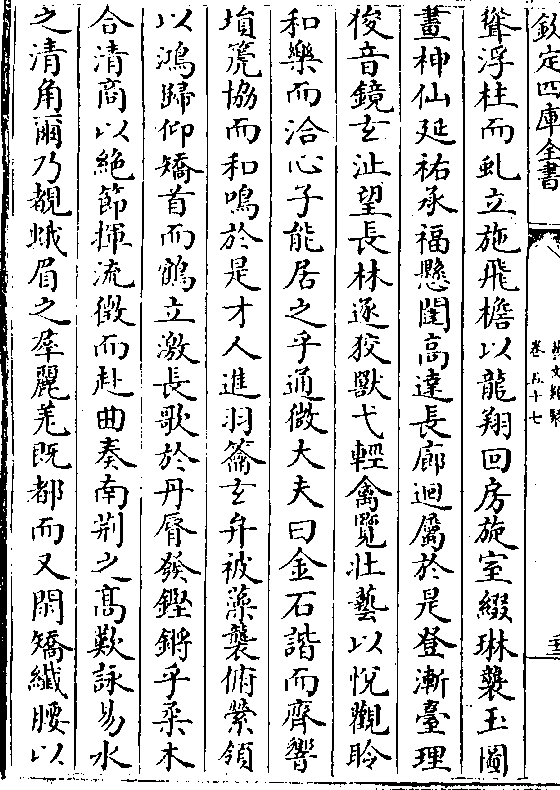 欽定四庫全書
藝文類聚
卷五十七
聳浮柱而虬立施飛檐以龍翔回房旋室綴琳襲玉圖
畫神仙延祐承福懸闥高達長廊迴屬於是登漸臺理
俊音鏡玄沚望長林逐狡獸弋輕禽覽壯藝以悅觀聆
和樂而洽心子能居之乎通微大夫曰金石諧而齊響
塤箎協而和鳴於是才人進羽籥玄弁被藻襲俯縈領
以鴻歸仰矯首而鶴立激長歌於丹脣發鏗鏘乎柔木
合清商以絕節揮流徵而赴曲奏南荆之髙歎詠易水
之清角爾乃覩蛾眉之羣麗羌既都而又閑矯纖腰以